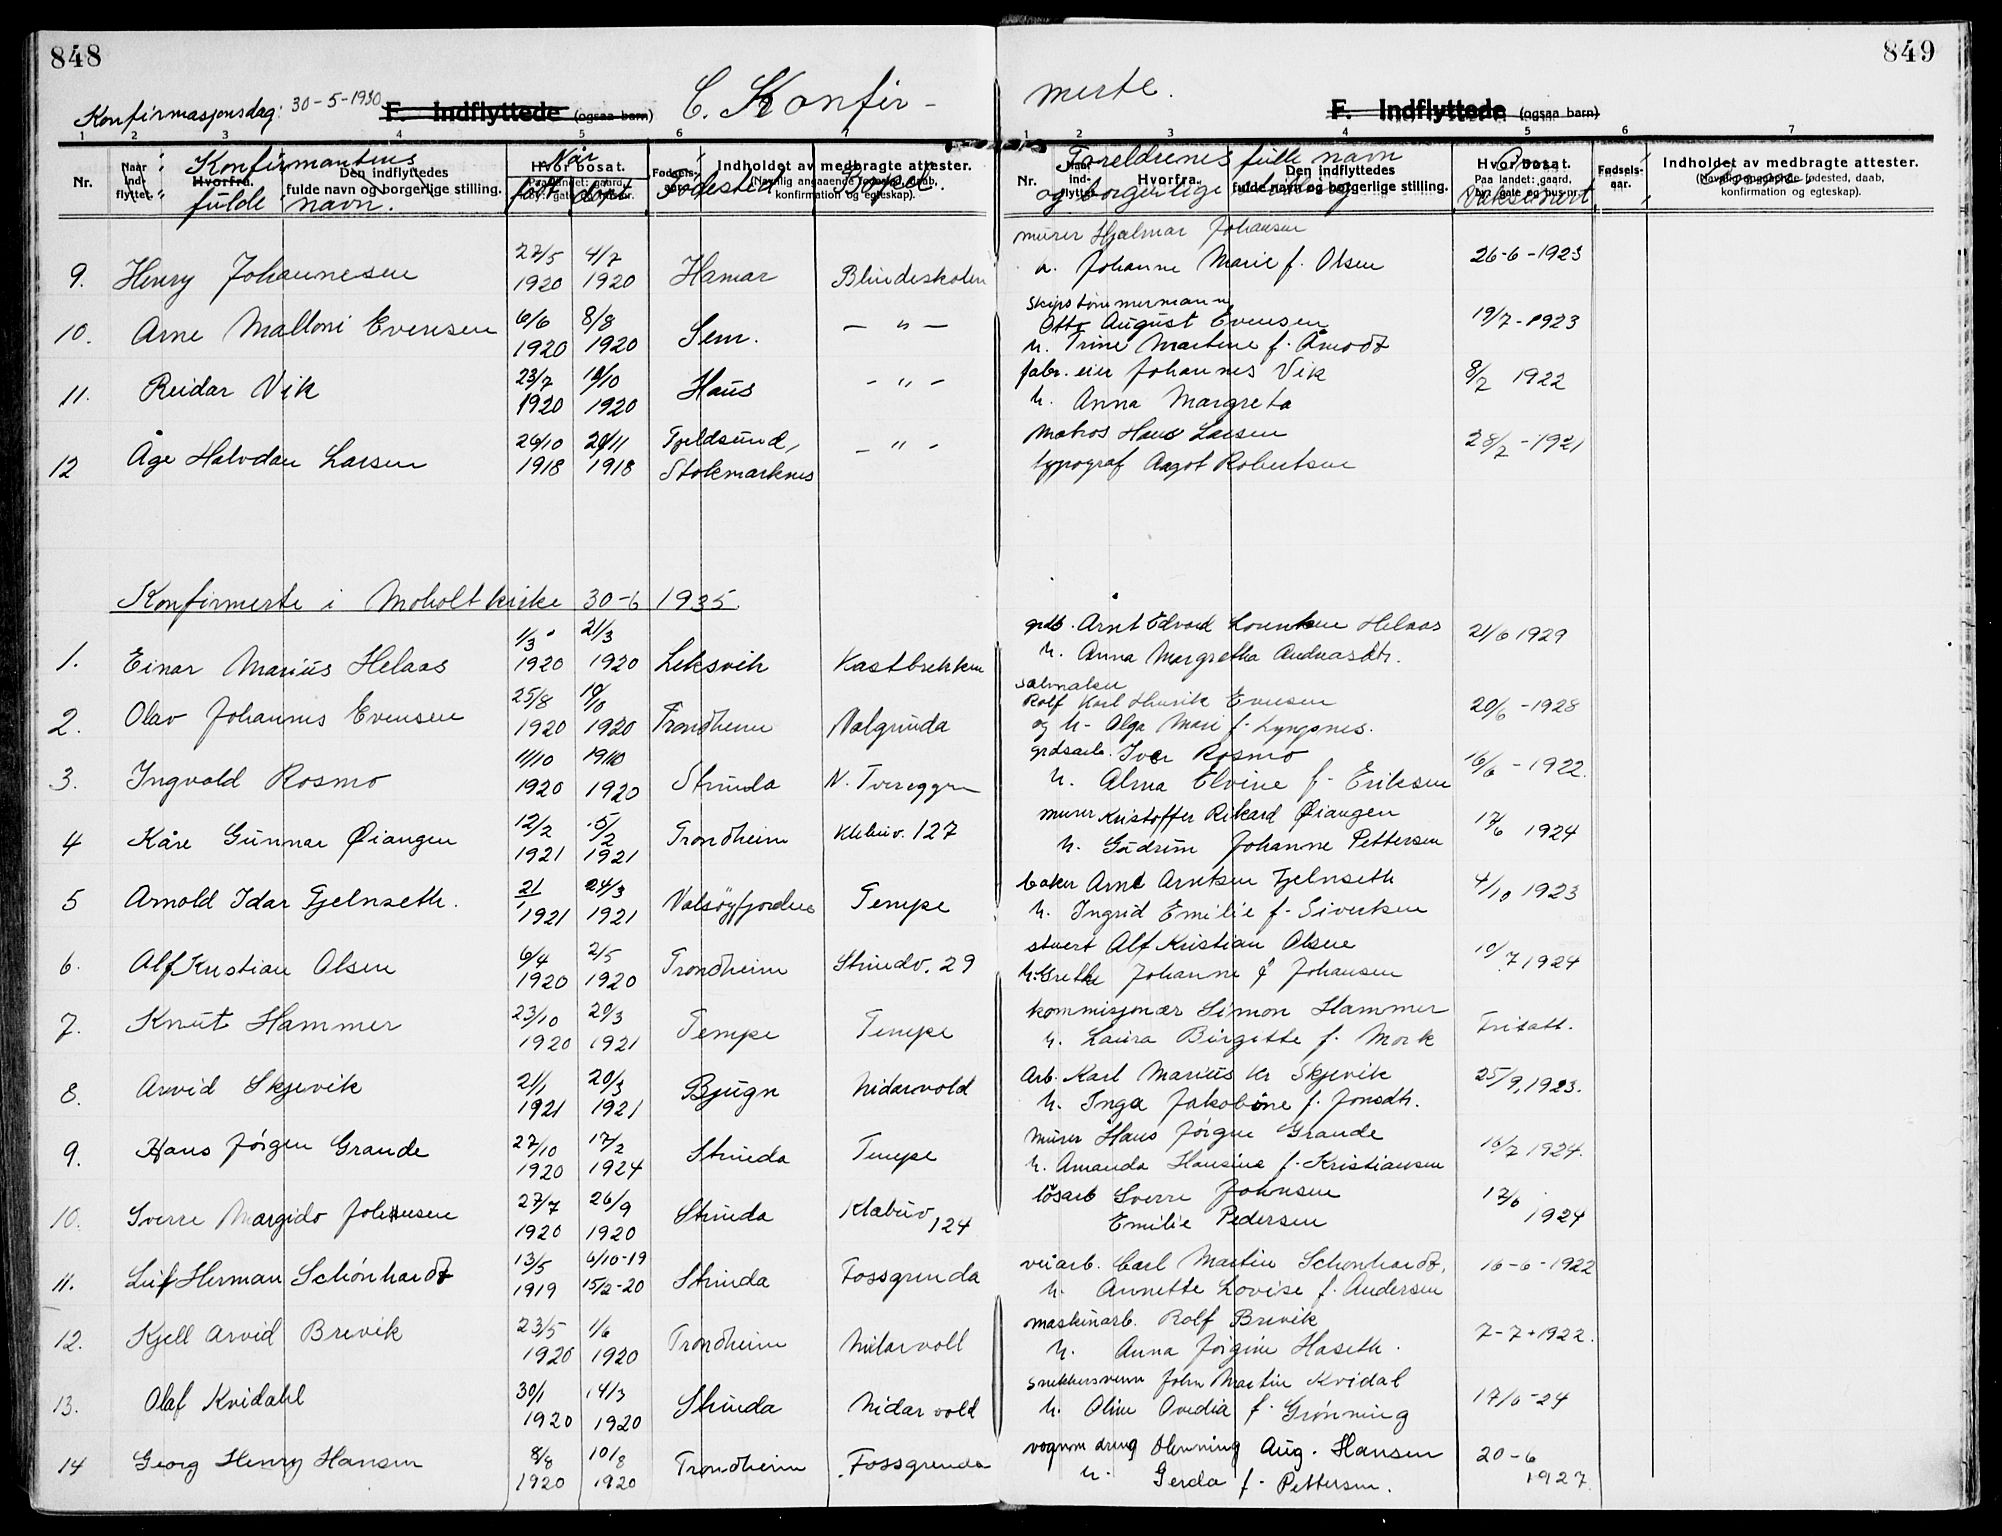 848
849
Konfirmasjonsdag: 30-5-1930
F. Indflyttede (ogsaa barn)
C. Konfir-
merte.
F. Indflyttede (ogsaa barn)
1 2 3 4 5 6 7
1 2 3 4 5 6 7
Nr.
Naar ind- flyttet.
Hvorfra.
Den indflyttedes fulde navn og borgerlige stilling.
Konfirmantens fulde navn.
Hvor bosat.
Når født døpt
Fødested
Bopæl.
Indholdet av medbragte attester.
konfirmation og egteskap).
Nr.
Foreldrenes fulle navn
og borgerlige stilling
Hvorfra.
Den indflyttedes fulde navn og borgerlige stilling.
Hvor bosat.
Paa landet: gaard,
By: gate og hus-nr.
Vaksinert
Fødsels- aar.
Indholdet av medbragte attester.
(Navnlig angaaende fødested, daab,
konfirmation og egteskap).
9. Henry Johannesen 27/5 1920 4/7 1920 Hamar Blindeskolen murer Hjalmar Johansen
h. Johanne Marie f. Olsen 26-6-1923
10. Arne Malloni Evensen 6/6 1920 8/8 1920 Sem. — " — skipstømmermann
Otto August Evensen
h. Trine Martine f. Åmodt 19/7-1923
11. Reidar Vik 23/7 1920 10/10 1920 Haus - " - fabr. eier Johannes Vik
h. Anna Margreta 8/7 1922
12 Åge Halvdan Larsen 26/10 1918 20/11 1918 Fjeldsund, Stokmarknes - " - Matros Hans Larsen
typograf Aagot Robertsen 28/7-1921
Konfirmerte i Moholt kirke 30-6 1935.
1. Einar Marius Helaas 1/3 1920 21/3 1920 Leksvik Kastbrekken grdb. Arnt Edvard Lorentsen Helaas
h. Anna Margretha Andreasdtr. 21/6 1929
2. Olav Johannes Evensen 25/8 1920 1920 Trondheim Valgrinda salmaker
Rolf Karl Henrik Evensen
og h. Alga Mari f. Lyngsnes. 20/6-1928
3. Ingvald Rosmo 11/10 1920 19/10 1920 Strinda N. Tvereggen grdsarb. Iver Rosmo
h. Alma Elvine f. Eriksen 16/6-1922.
4 Kåre Gunnar Øiangen 12/2 1921 5/2 1921 Trondheim Klæbuv. 127 murer Kristoffer Rikard Øiangen
h. Gudrun Johanne Pettersen 17/6 1924
5 Arnold Idar Fjelnseth. 21/1 1921 24/3 1921 Valsøyfjorden Tempe baker Arnt Arntsen Fjelnseth
h. Ingrid Emilie f. Sivertsen 4/10 1923
6. Alf Kristian Olsen 6/4 1920 2/5 1920 Trondheim Strindv. 29 stuert Alf Kristian Olsen
h. Grethe Johanne f. Johansen 10/7 1924
7. Knut Hammer 23/10 1920 20/3 1921 Tempe Tempe kommisjonær Simon Hammer
h. Laura Birgitte f. Mork Fritatt.
8. Arvid Skjevik 21/1 1921 20/3 1921 Bjugn Nidarvold Arb. Karl Marius Kr Skjevik
h. Inga Jakobine f. Jonsdtr. 25/9,1923.
9. Hans Jørgen Grande 27/10 1920 17/2 1924 Strinda Tempe Murer Hans Jørgen Grande
h. Amanda Hansine f. Kristiansen 16/7 1924.
10. Sverre Margido Johnsen 27/7 1920 26/9 1920 Strinda Klæbuv 124 løsarb Sverre Johnsen
Emilie Pedersen 17/6 1924
11. Leif Herman Schönhardt 13/5 1919 6/10-19 15/2-20 Strinda Fossgrenda veiarb. Carl Martin Schönhardt,
h. Annette Lovise f. Andersen 16-6-1922
12. Kjell Arvid Brevik 23/5 1920 1/6 1920 Trondheim Nidarvoll maskinarb. Rolf Brevik
h. Anna Jørgine Haseth. 7-7-1922.
13. Olaf Kvidahl 30/1 1920 14/3 1920 Strinda Nidarvold snekkersvenn John Martin Kvidal
h. Oline Ovedia f. Grønning 17/6-24
14 Georg Henry Hansen 8/8 1920 10/8 1920 Trondheim Fossgrenda vognm dreng Henning Aug. Hansen
h. Gerda f. Pettersen. 20-6 1927